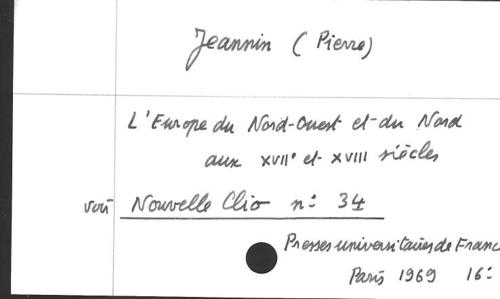 Jeannin (Pierre)
L'Europe du Nord-Ouest et du Nord
aux XVIIe et XVIII siècles
voir Nouvelle Clio n: 34
Presses universitaires de Franc
Paris 1969 16: